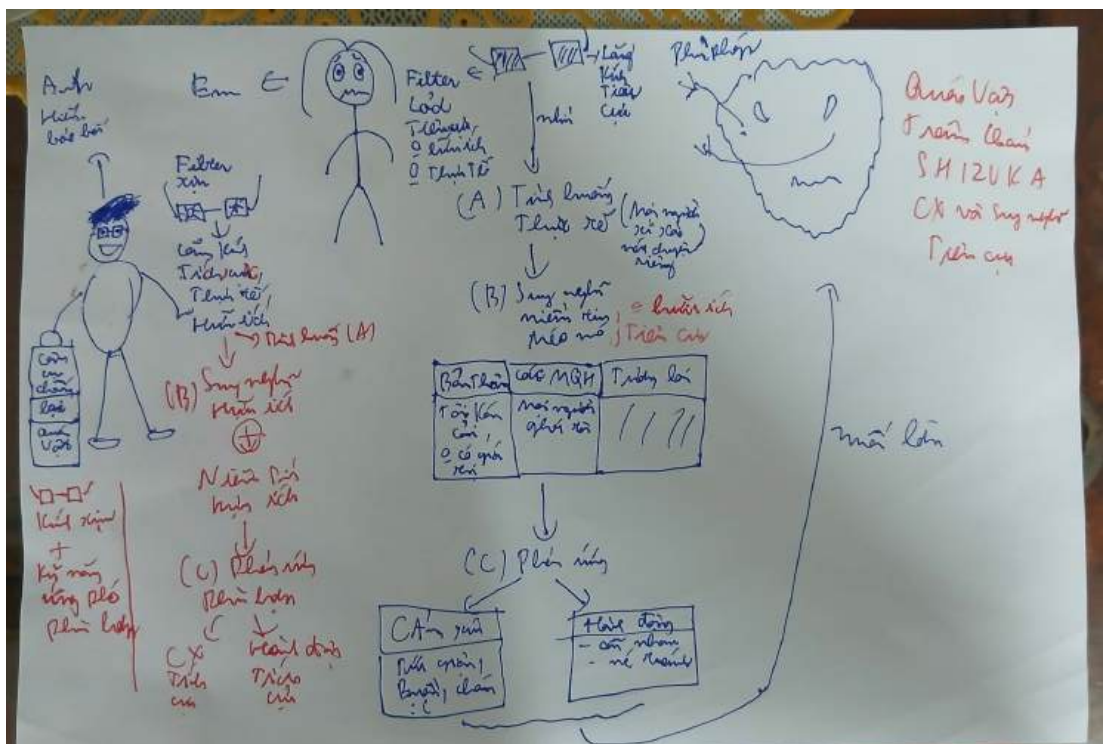 Anh
hiểu
báo bối
Em
Filter
xịn
lăng kính
Tích cực,
Thực tế,
Hữu ích
Tình huống (A)
(B) Suy nghĩ
Hữu ích
Niềm tin
hữu ích
(C) Phản ứng
phù hợp
CX
Tích
cực
Hành động
Tích
cực
Cẩm
chống
lại
quái
vật
Kính xịn
+
Kỹ năng
ứng phó
phù hợp
Filter
Tiêu cực,
hữu ích
Thực tế
Lăng
kính
Tiêu
Cực
nhìn
(A) Tình huống
Thực tế
(Mọi người
riêng)
(B) Suy nghĩ
niềm tin
méo mó
hữu ích
Tiêu cực
Bản Thân
các MQH
Tương lai
Tôi kém
cỏi,
có giá
trị
mọi người
ghét tôi
(C) Phản ứng
CẢm xúc
Tức giận,
Buồn, chán
Hành động
- cãi nhau
- né tránh
Phù phép
Quái Vật
Trầm Cảm
SHIZUKA
CX và Suy nghĩ
Tiêu cực
nuôi lớn